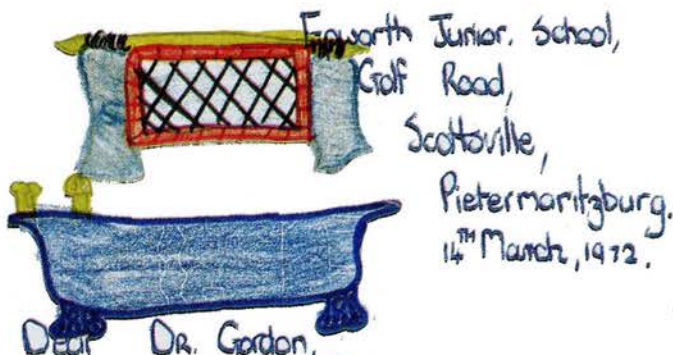 Epworth Junior. School,
Golf Road,
Scottsville,
Pietermaritzburg.
14TH March, 1972.
Dear DR. Gordon,